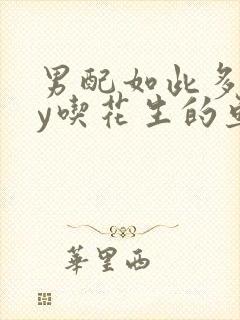 男配如此多
y喫花生的
華里西